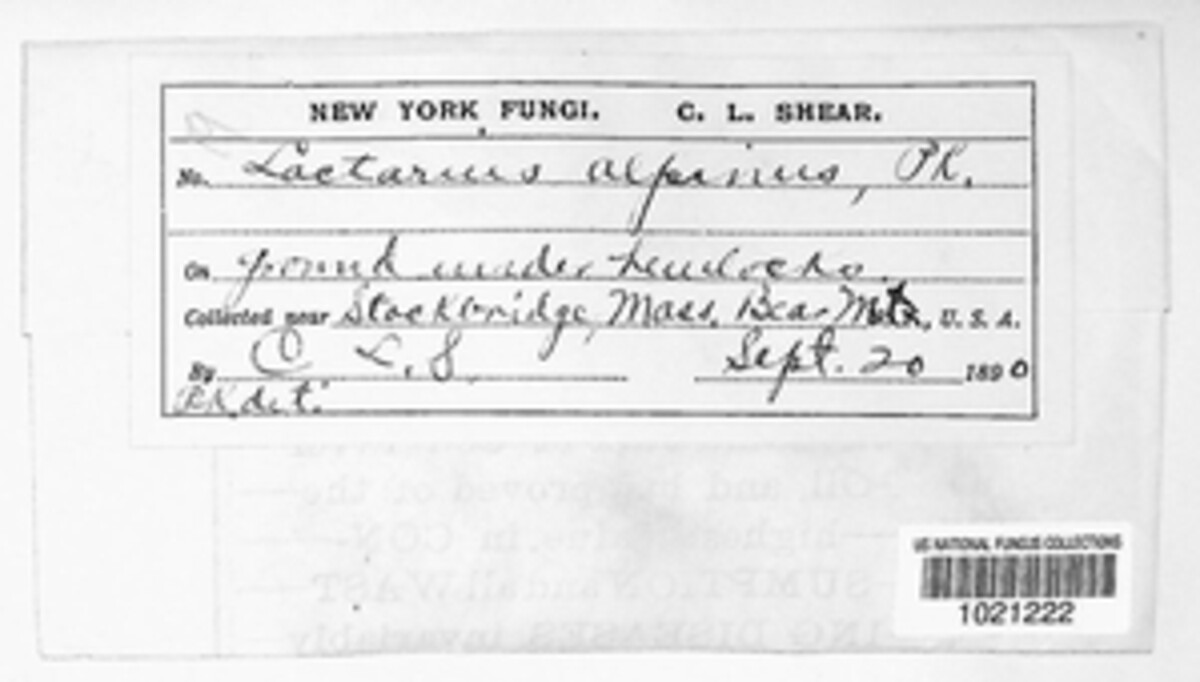 NEW YORK FUNGI. C. L. SHEAR.
No. Lactarius alpinus, Pk.
On ground under hemlocks.
Collected near Stockbridge, Mass. Bear Mts, U. S. A.
By C. L. S. Sept. 20 1890
Pk det.
Oil, and has proved of the
highest value in CON-
SUMPTION and all WAST
ING DISEASES invariably
US NATIONAL FUNGUS COLLECTIONS
1021222